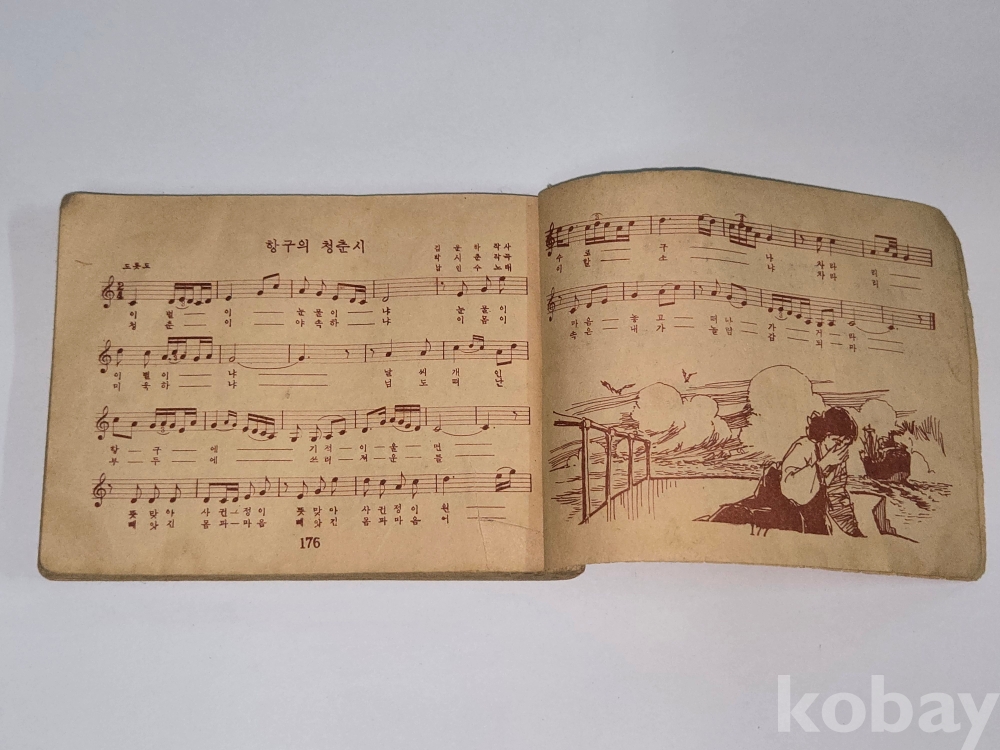 항구의 청춘시
김 운 하 작사
박 시 춘 작곡
남 인 수 노래
도롯도
이 별 — 이 — 눈 물 이 — 냐 — 눈 물 이
청 춘 — 이 — 야 속 하 — 냐 — 이 몸 이
이 별 이 — 냐 — 날 씨 개 인
미 욱 하 — 냐 — 님 도 떠 난
항 — 구 — 에 — 기 적 — 이 — 울 — 면 —
부 — 두 — 에 — 쓰 러 — 져 — 운 — 들 —
뜻 맞 아 사 귄 — 정 이 뜻 맞 아 사 귄 정 이 원
빼 앗 긴 몸 과 — 마 음 빼 앗 긴 몸 과 마 음 어
176
수 로 — 구 — 나 — 차 라 리 —
이 할 — 소 — 냐 — 차 라 리 —
마 음 — 놓 고 — 떠 나 — 가 — 거 — 라 —
속 은 — 내 가 — 놀 램 — 감 — 되 — 마 —
177
kobay